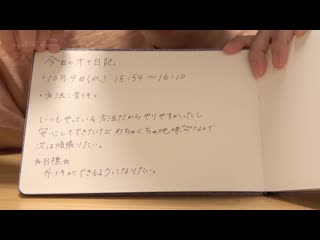 今日のオナ日記
・10月9日(水) 15:54〜16:10
・方法:
いつもやっている方法だからやりやすかったし
安心してできたけど めちゃくちゃ地味なので
次は頑張りたい。
お目様は
ができるようになりたい。